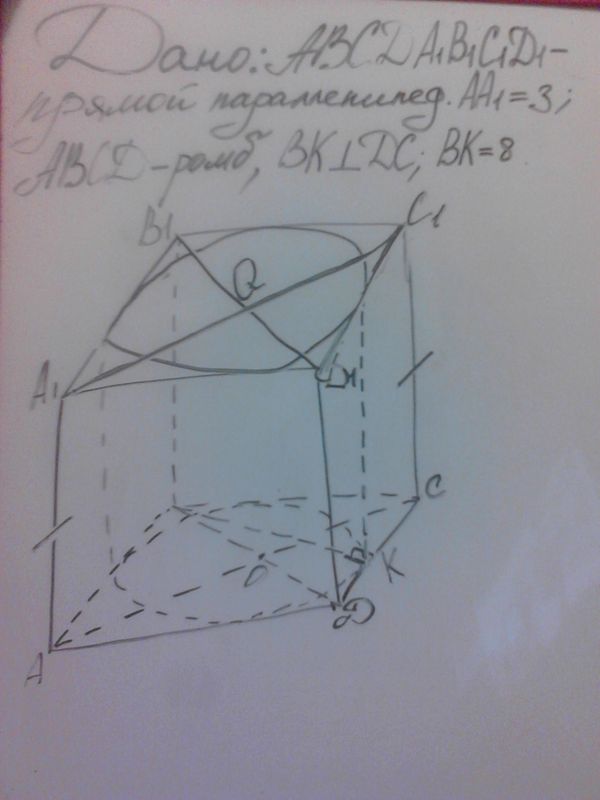 Дано: ABCDA₁B₁C₁D₁-
прямой параллепипед. AA₁=3;
ABCD-ромб, BK⊥DC; BK=8
B₁
C₁
Q
A₁
D₁
C
O
K
D
A